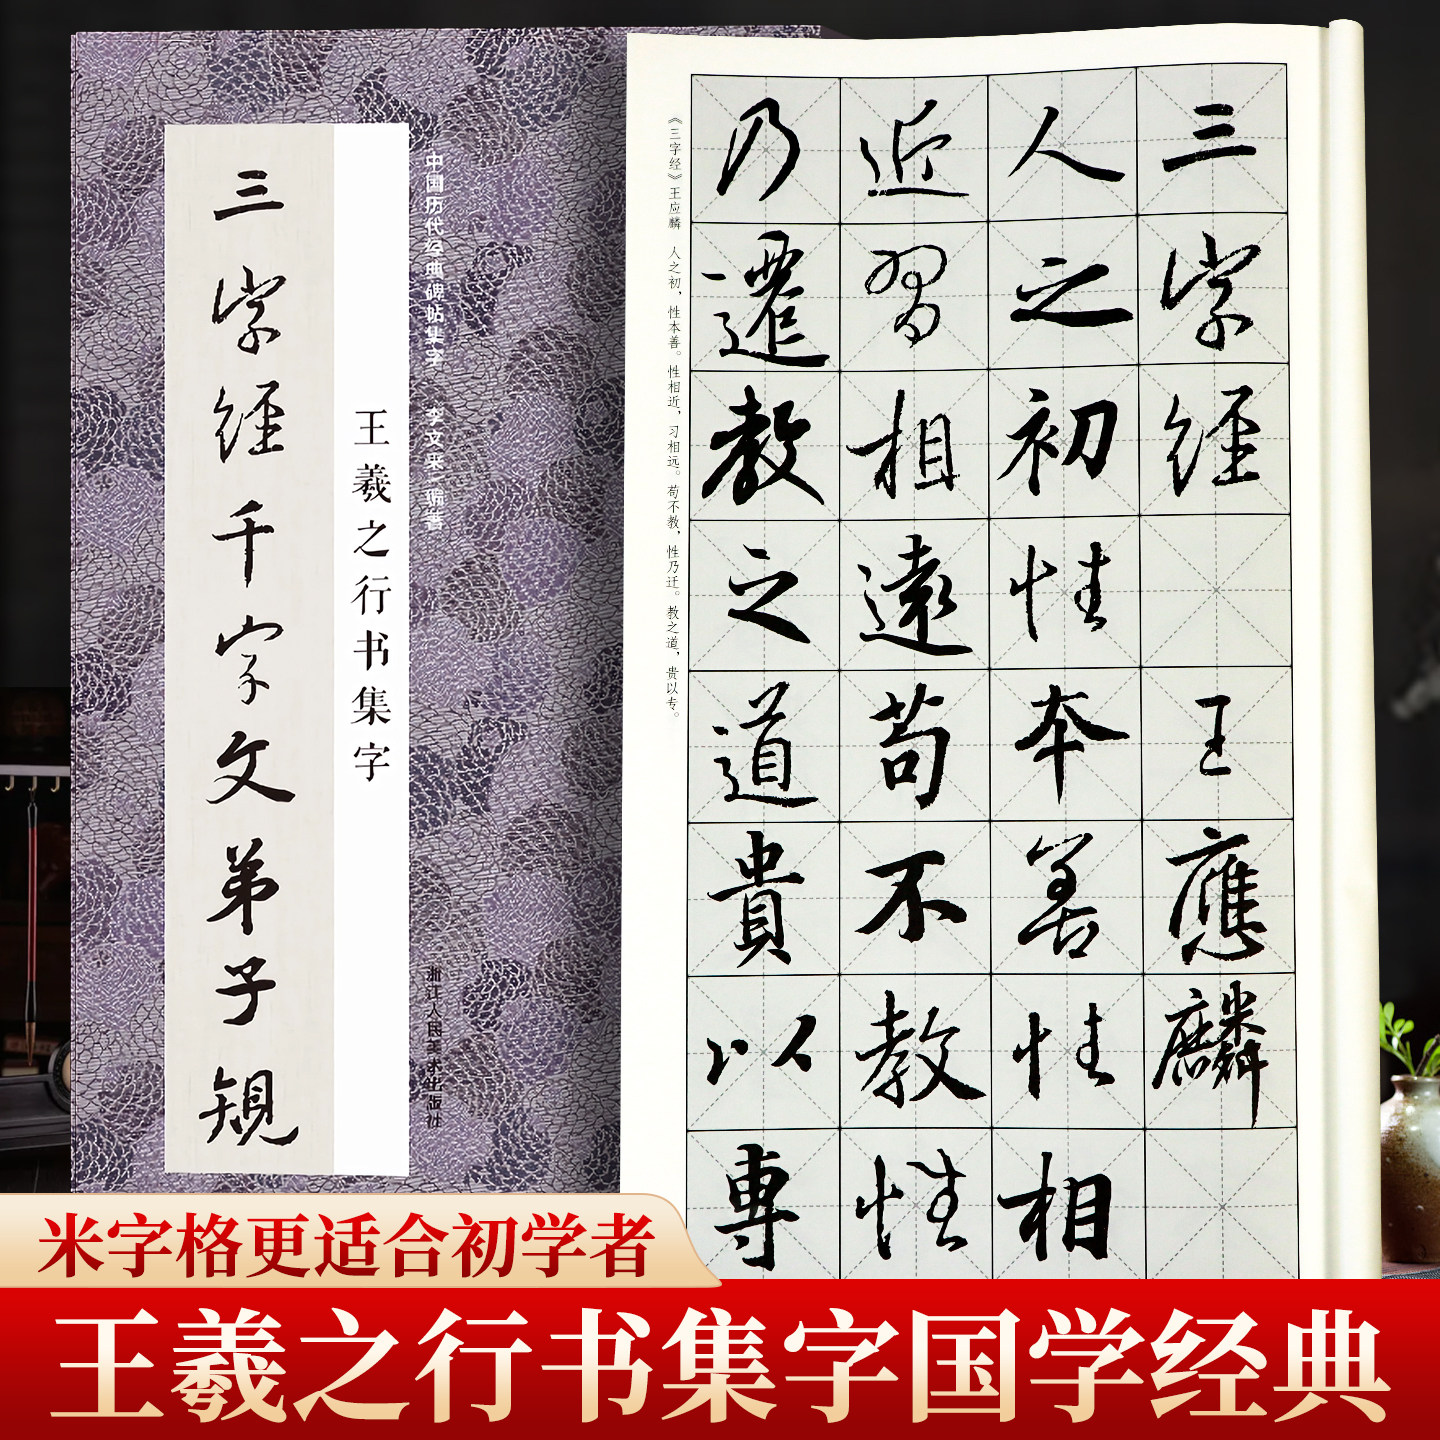 三字经千字文弟子规
王羲之行书集字
中国历代经典碑帖集字 李文采 编著
浙江人民美术出版社
三字經 王應麟
人之初性本善性相
近習相遠苟不教性
乃遷教之道貴以專
《三字经》王应麟 人之初，性本善。性相近，习相远。苟不教，性乃迁。教之道，贵以专。
米字格更适合初学者
王羲之行书集字国学经典